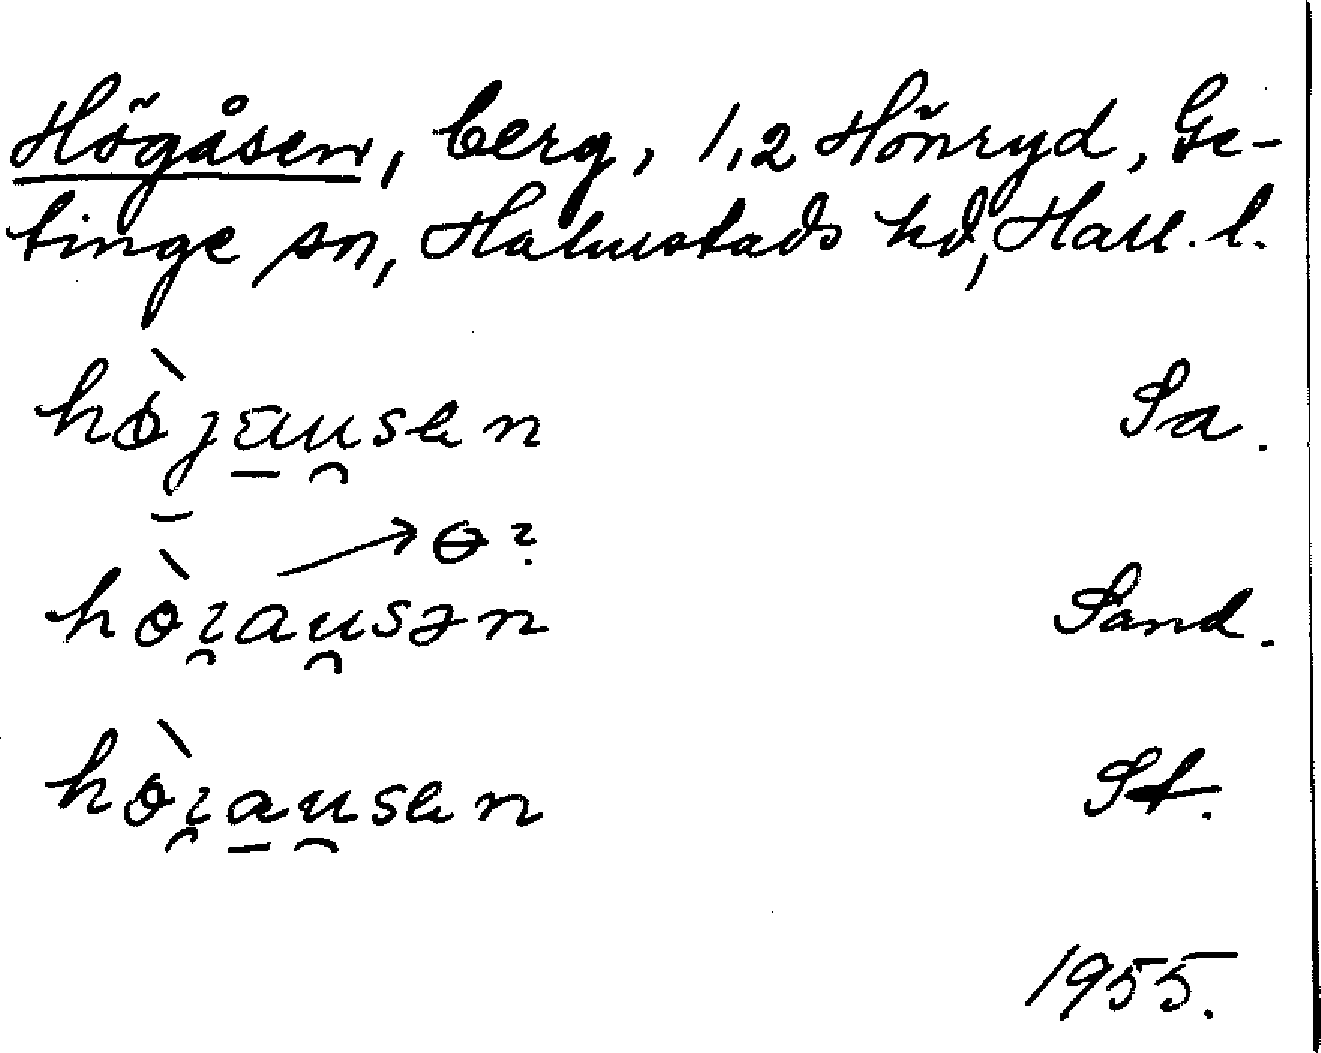 Högåsen, berg, 1,2 Hönryd, Ge-
tinge sn, Halmstads hd, Hall. l.
hòjau̯sen Sa.
→ɵ?
hòi̯au̯sən Sand.
hòi̯a̱u̯sen St.
1955.